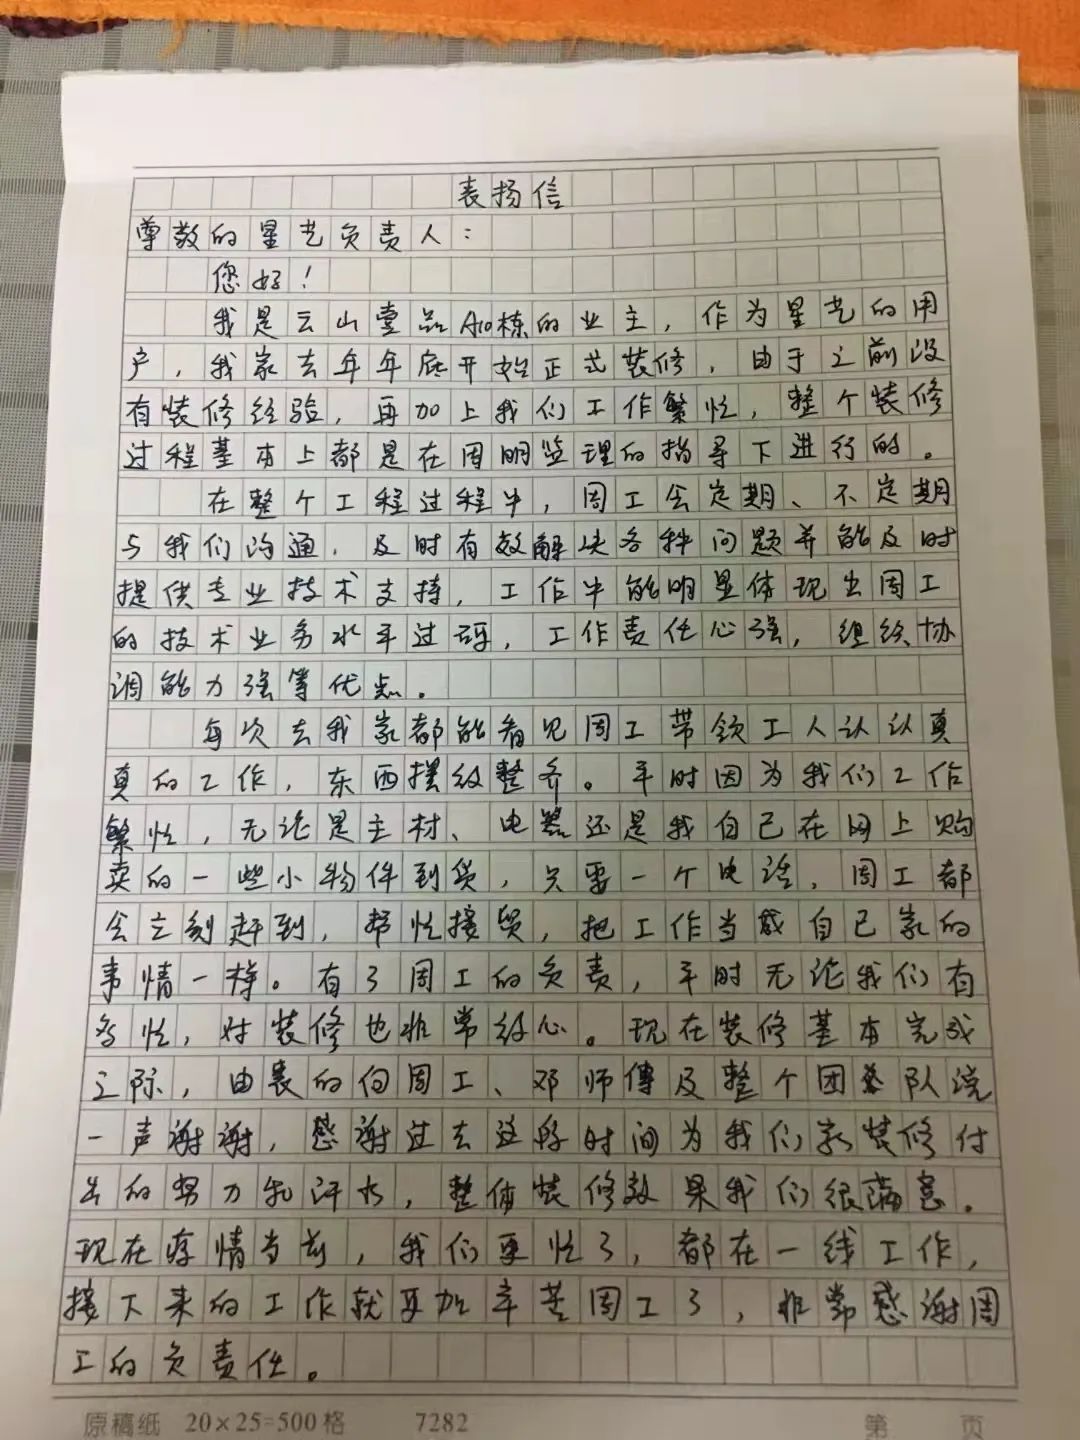 表扬信
尊敬的星艺负责人：
您好！
我是云山壹品A10栋的业主，作为星艺的用
户，我家去年年底开始正式装修，由于之前没
有装修经验，再加上我们工作繁忙，整个装修
过程基本上都是在周明监理的指导下进行的。
在整个工程过程中，周工会定期、不定期
与我们沟通，及时有效解决各种问题并能及时
提供专业技术支持，工作中能明显体现出周工
的技术业务水平过硬，工作责任心强，组织协
调能力强等优点。
每次去我家都能看见周工带领工人认认真
真的工作，东西摆放整齐。平时因为我们工作
繁忙，无论是主材、电器还是我自己在网上购
卖的一些小物件到货，只要一个电话，周工都
会立刻赶到，帮忙接货，把工作当成自己家的
事情一样。有了周工的负责，平时无论我们有
多忙，对装修也非常放心。现在装修基本完成
之际，由衷的向周工、邓师傅及整个团队说
一声谢谢，感谢过去这段时间为我们家装修付
出的努力和汗水，整体装修效果我们很满意。
现在疫情当前，我们更忙了，都在一线工作，
接下来的工作就更加辛苦周工了，非常感谢周
工的负责任。
原稿纸 20×25=500格 7282 第 页